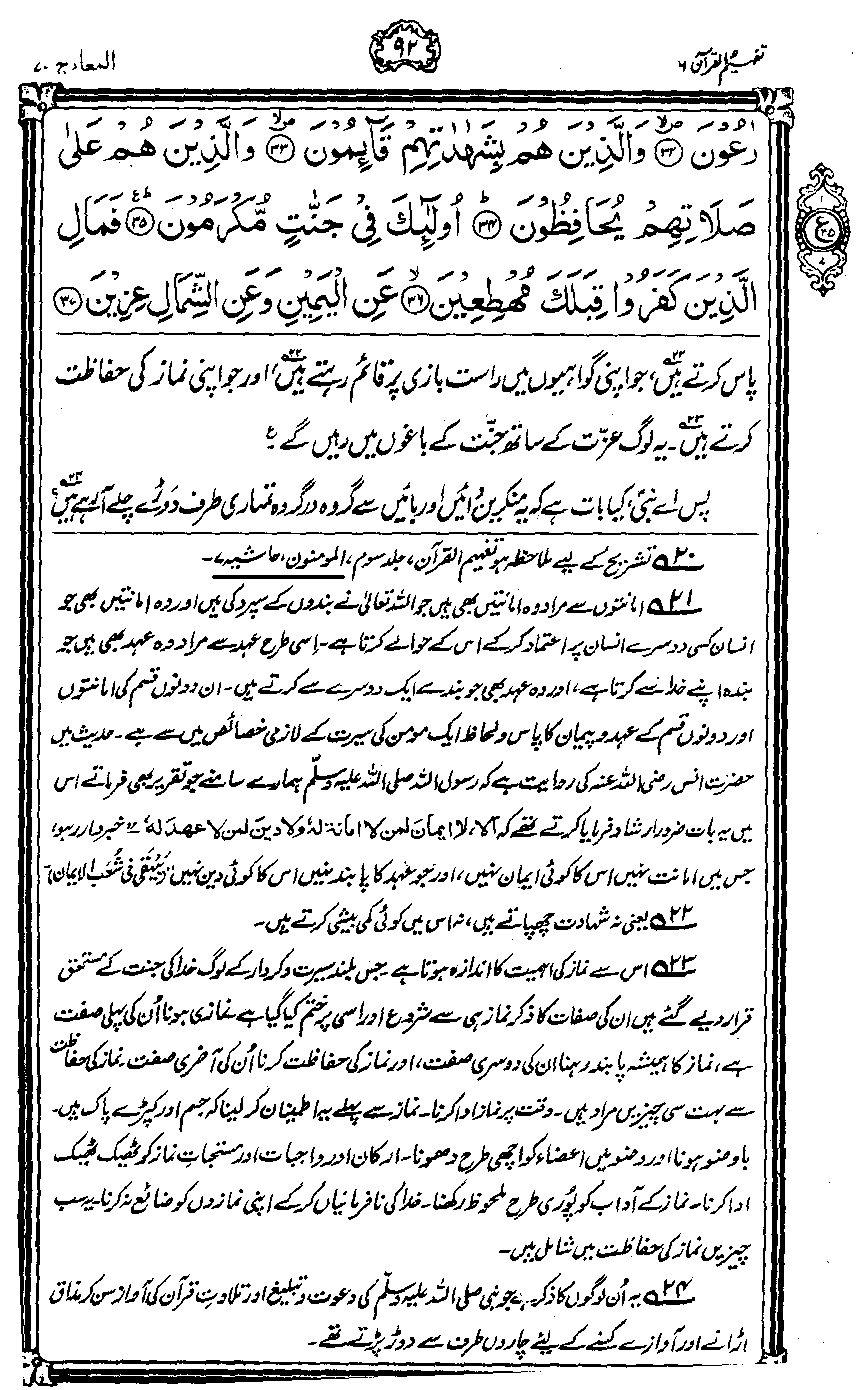 تفہیم القرآن ۶
۹۲
المعارج ۷۰
رٰعُوْنَ ﴿۳۲﴾ وَالَّذِيْنَ هُمْ بِشَهٰدٰتِهِمْ قَآئِمُوْنَ ﴿۳۳﴾ وَالَّذِيْنَ هُمْ عَلٰى
صَلَاتِهِمْ يُحَافِظُوْنَ ﴿۳۴﴾ اُولٰٓئِكَ فِيْ جَنّٰتٍ مُّكْرَمُوْنَ ﴿۳۵﴾ فَمَالِ
الَّذِيْنَ كَفَرُوْا قِبَلَكَ مُهْطِعِيْنَ ﴿۳۶﴾ عَنِ الْيَمِيْنِ وَعَنِ الشِّمَالِ عِزِيْنَ ﴿۳۷﴾
پاس کرتے ہیں، جو اپنی گواہیوں میں راست بازی پر قائم رہتے ہیں،۲۲ اور جو اپنی نماز کی حفاظت
کرتے ہیں۲۳۔ یہ لوگ عزّت کے ساتھ جنّت کے باغوں میں رہیں گے ع
پس اے نبیؐ، کیا بات ہے کہ یہ منکرین دائیں اور بائیں سے گروہ در گروہ تمہاری طرف دَوڑے چلے آ رہے ہیں؟۲۴
۲۰ تشریح کے لیے ملاحظہ ہو تفہیم القرآن، جلد سوم، المومنون، حاشیہ ۷۔
۲۱ امانتوں سے مراد وہ امانتیں بھی ہیں جو اللہ تعالیٰ نے بندوں کے سپرد کی ہیں اور وہ امانتیں بھی جو
انسان کسی دوسرے انسان پر اعتماد کر کے اس کے حوالے کرتا ہے۔ اسی طرح عہد سے مراد وہ عہد بھی ہیں جو
بندہ اپنے خدا سے کرتا ہے، اور وہ عہد بھی جو بندے ایک دوسرے سے کرتے ہیں۔ ان دونوں قسم کی امانتوں
اور دونوں قسم کے عہد و پیمان کا پاس و لحاظ ایک مومن کی سیرت کے لازمی خصائص میں سے ہے۔ حدیث میں
حضرت انس رضی اللہ عنہ کی روایت ہے کہ رسول اللہ صلی اللہ علیہ وسلّم ہمارے سامنے جو تقریر بھی فرماتے اس
میں یہ بات ضرور ارشاد فرمایا کرتے تھے کہ الا، لا ایمان لمن لا امانۃ لہٗ ولا دین لمن لا عھد لہٗ "خبردار رہو،
جس میں امانت نہیں اس کا کوئی ایمان نہیں، اور جو عہد کا پابند نہیں اس کا کوئی دین نہیں" (بیہقی فی شُعَب الایمان)۔
۲۲ یعنی نہ شہادت چھپاتے ہیں، نہ اس میں کوئی کمی بیشی کرتے ہیں۔
۲۳ اس سے نماز کی اہمیت کا اندازہ ہوتا ہے۔ جس بلند سیرت و کردار کے لوگ خدا کی جنت کے مستحق
قرار دیے گئے ہیں ان کی صفات کا ذکر نماز ہی سے شروع اور اسی پر ختم کیا گیا ہے۔ نمازی ہونا اُن کی پہلی صفت
ہے، نماز کا ہمیشہ پابند رہنا ان کی دوسری صفت، اور نماز کی حفاظت کرنا اُن کی آخری صفت۔ نماز کی حفاظت
سے بہت سی چیزیں مراد ہیں۔ وقت پر نماز ادا کرنا۔ نماز سے پہلے یہ اطمینان کر لینا کہ جسم اور کپڑے پاک ہیں۔
باوضو ہونا اور وضو میں اعضاء کو اچھی طرح دھونا۔ ارکان اور واجبات اور مستحبات نماز کو ٹھیک ٹھیک
ادا کرنا۔ نماز کے آداب کو پُوری طرح ملحوظ رکھنا۔ خدا کی نافرمانیاں کر کے اپنی نمازوں کو ضائع نہ کرنا۔ یہ سب
چیزیں نماز کی حفاظت میں شامل ہیں۔
۲۴ یہ اُن لوگوں کا ذکر ہے جو نبی صلی اللہ علیہ وسلّم کی دعوت و تبلیغ اور تلاوتِ قرآن کی آواز سن کر مذاق
اڑانے اور آوازے کسنے کے لیے چاروں طرف سے دوڑ پڑتے تھے۔